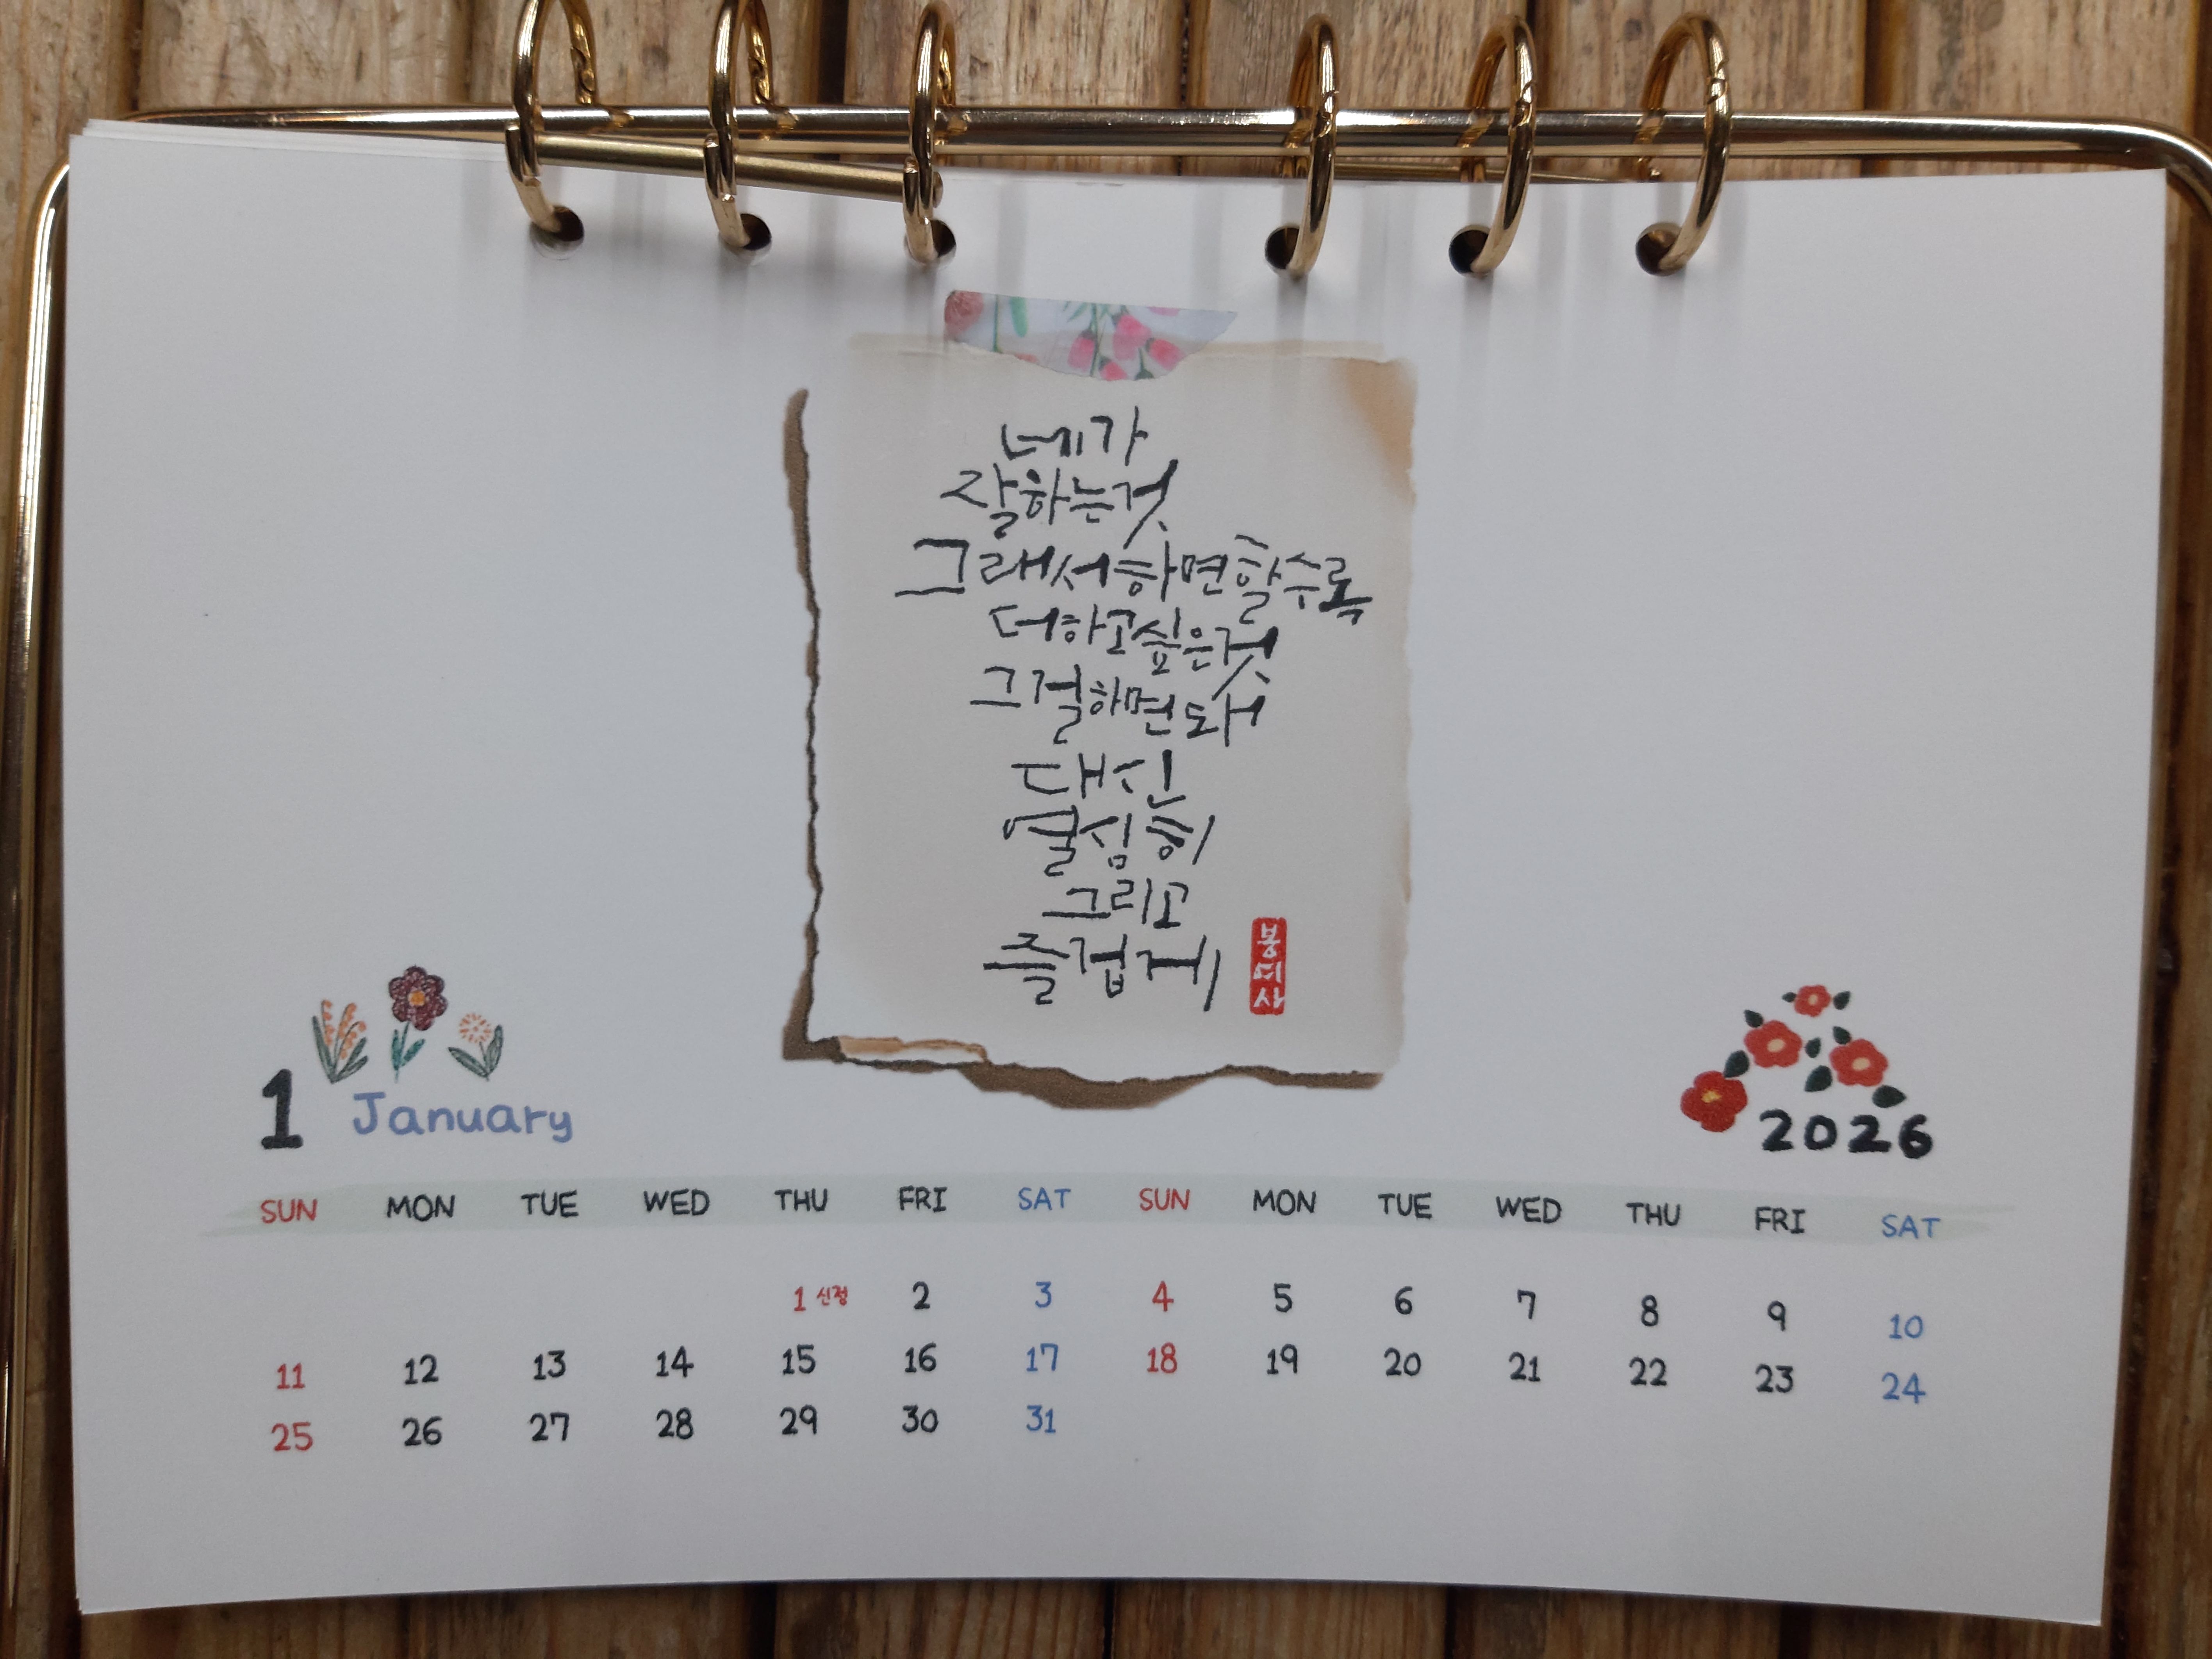 네가
잘하는것
그래서하면할수록
더하고싶은것
그걸하면돼
대신
열심히
그리고
즐겁게
1 January
2026
SUN MON TUE WED THU FRI SAT SUN MON TUE WED THU FRI SAT
1 신정 2 3 4 5 6 7 8 9 10
11 12 13 14 15 16 17 18 19 20 21 22 23 24
25 26 27 28 29 30 31